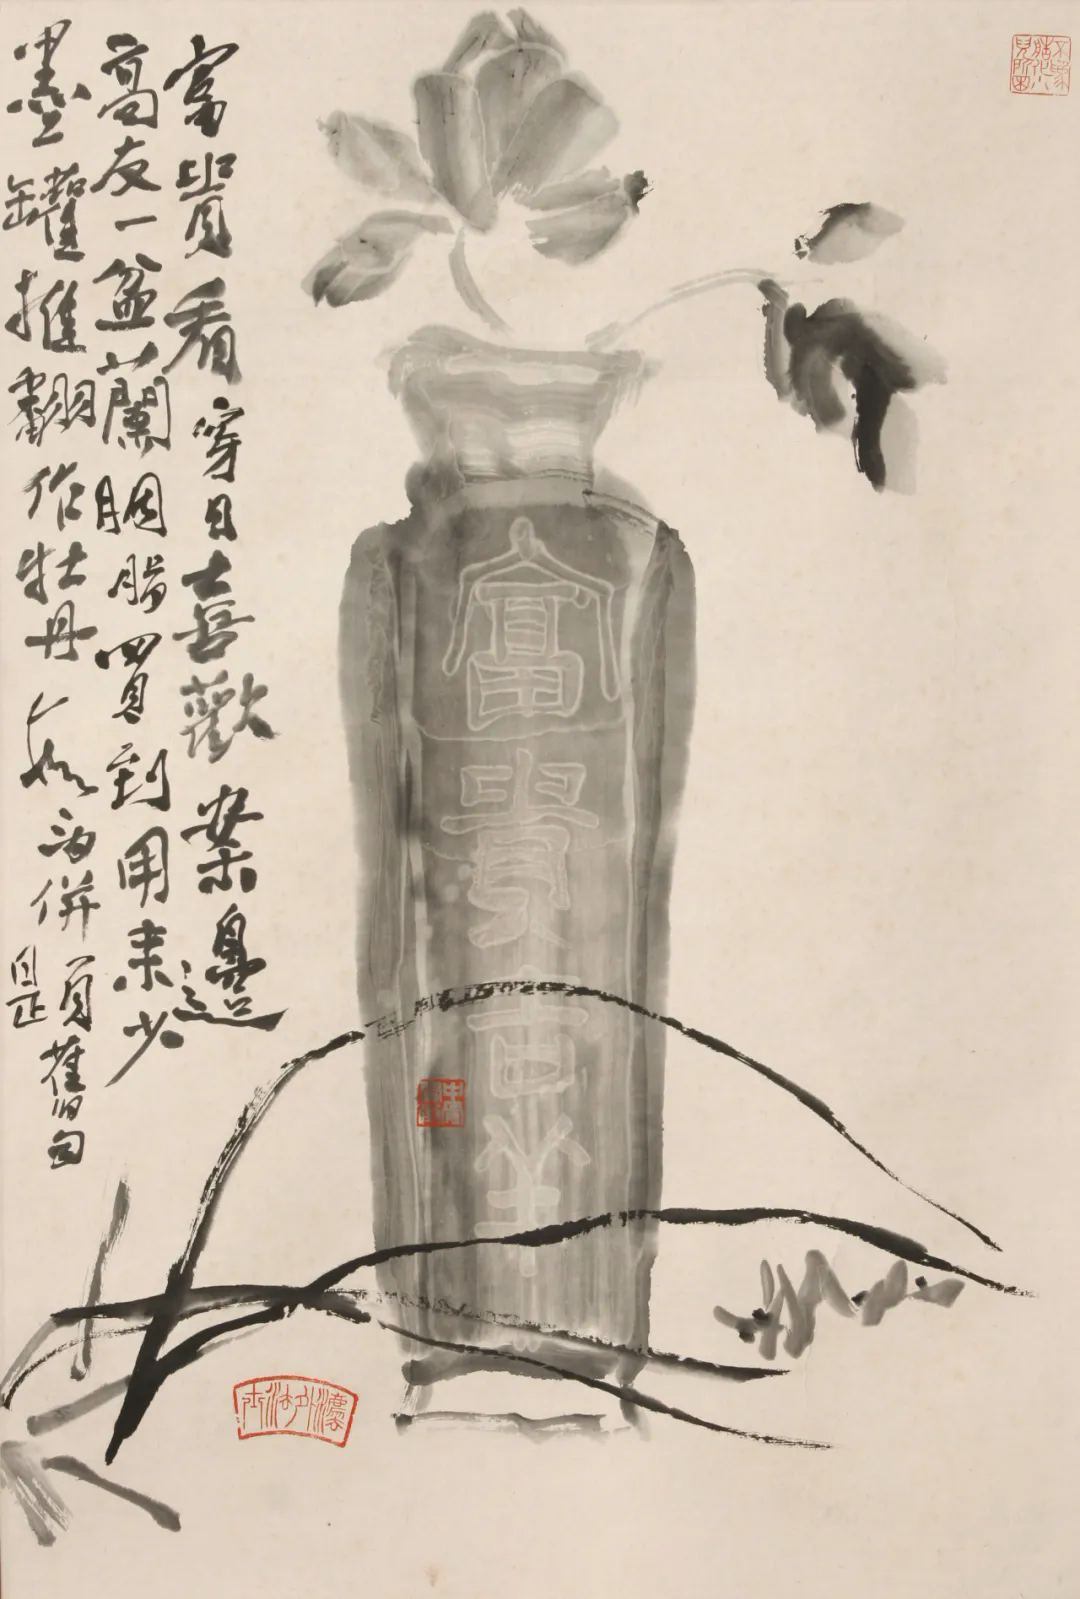 富貴看穿自喜歡案邊
高友一盆蘭胭脂買到用來少
墨罐推翻作牡丹
舊句
富貴吉羊